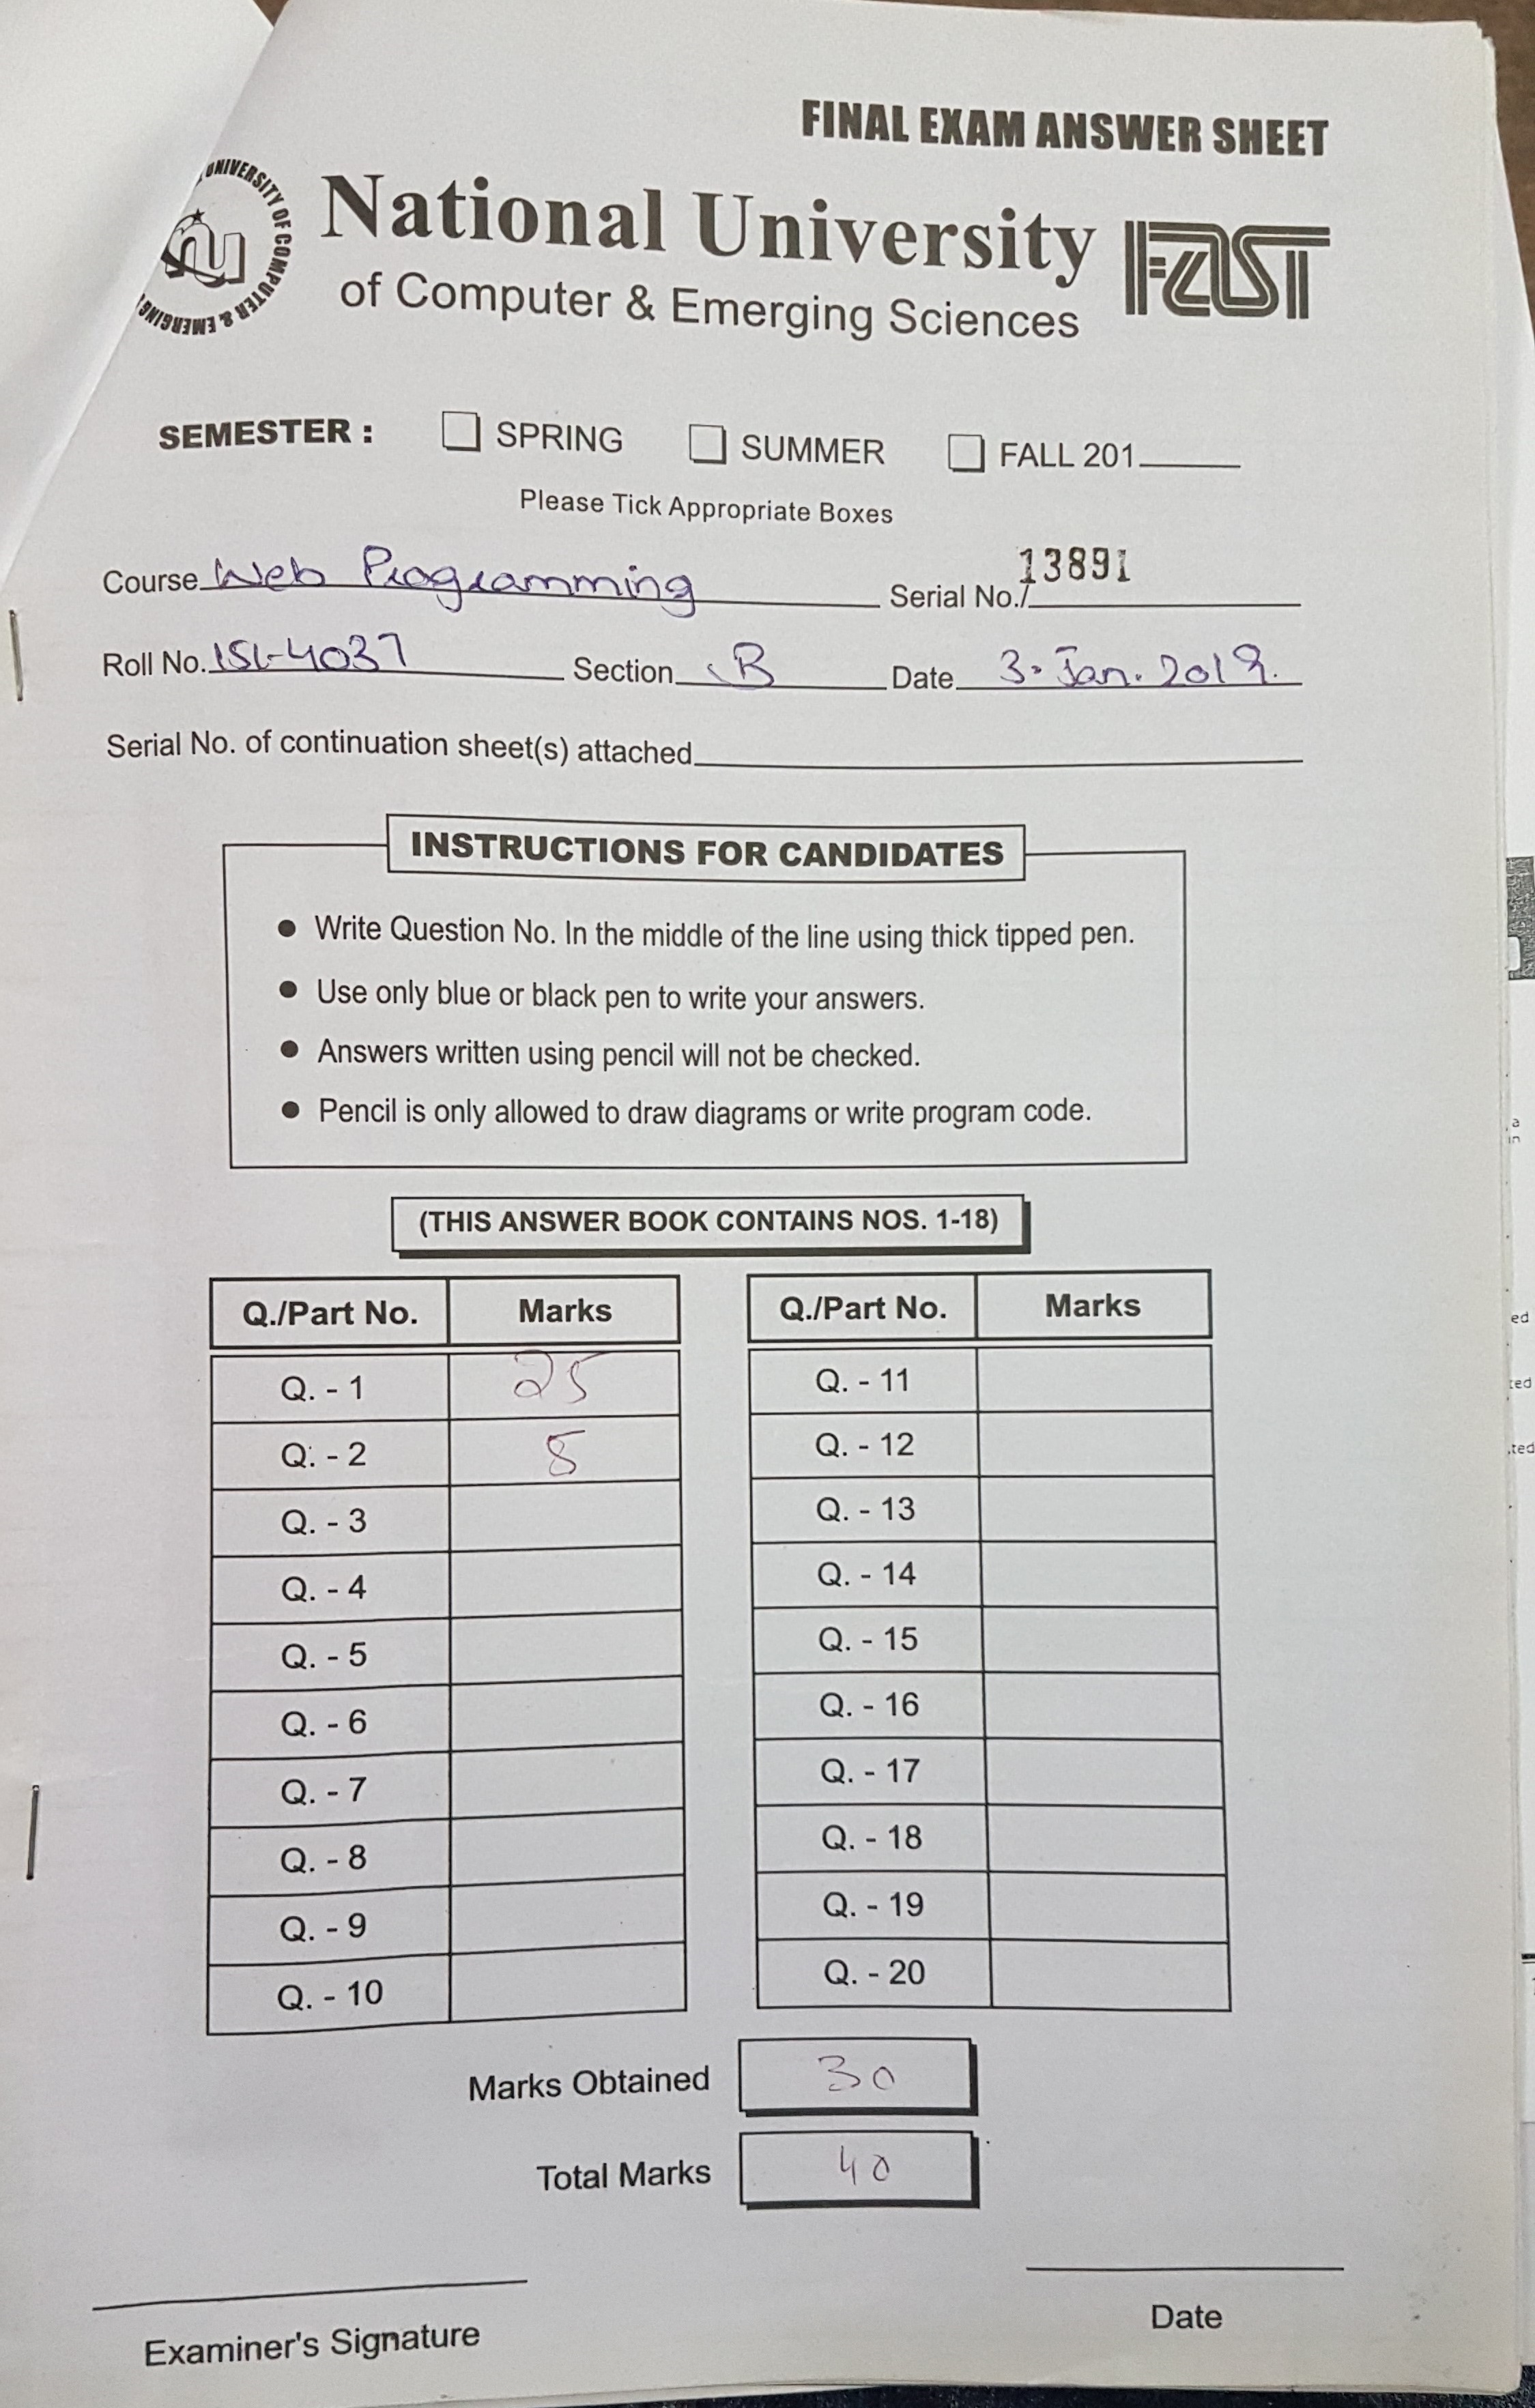 FINAL EXAM ANSWER SHEET
UNIVERSITY OF COMPUTER & EMERGING
nu
National University
of Computer & Emerging Sciences
FAST
SEMESTER : SPRING SUMMER FALL 201
Please Tick Appropriate Boxes
Course Web Programming Serial No./ 13891
Roll No. 15L-4037 Section B Date 3. Jan. 2019.
Serial No. of continuation sheet(s) attached
INSTRUCTIONS FOR CANDIDATES
● Write Question No. In the middle of the line using thick tipped pen.
● Use only blue or black pen to write your answers.
● Answers written using pencil will not be checked.
● Pencil is only allowed to draw diagrams or write program code.
(THIS ANSWER BOOK CONTAINS NOS. 1-18)
Q./Part No. Marks Q./Part No. Marks
Q. - 1 25 Q. - 11
Q. - 2 5 Q. - 12
Q. - 3 Q. - 13
Q. - 4 Q. - 14
Q. - 5 Q. - 15
Q. - 6 Q. - 16
Q. - 7 Q. - 17
Q. - 8 Q. - 18
Q. - 9 Q. - 19
Q. - 10 Q. - 20
Marks Obtained 30
Total Marks 40
Examiner's Signature Date